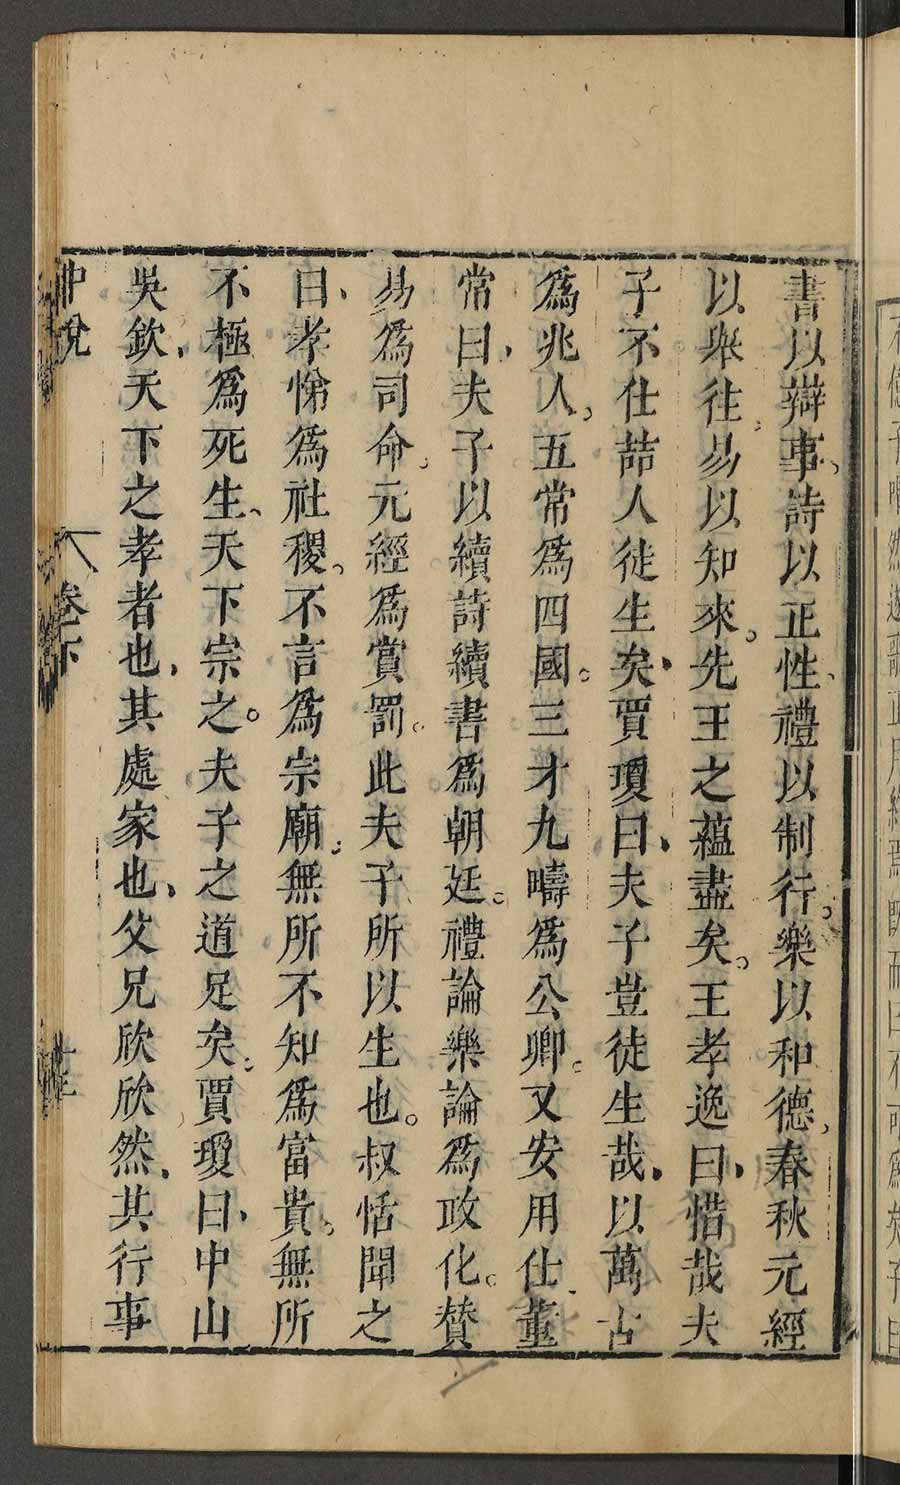 書以辯事。詩以正性、禮以制行。樂以和德、春秋元經
以舉往、易以知來。先王之蘊盡矣。王孝逸曰、惜哉夫
子不仕喆人徒生矣、賈瓊曰、夫子豈徒生哉、以萬古
爲兆人、五常爲四國。三才九疇爲公卿。又安用仕、董
常曰、夫子以續詩續書爲朝廷。禮論樂論爲政化。贊
易爲司命、元經爲賞罰。此夫子所以生也。叔恬聞之
曰、孝悌爲社稷。不言爲宗廟、無所不知爲富貴。無所
不極爲死生、天下宗之。夫子之道足矣。賈瓊曰、中山
吳欽、天下之孝者也、其處家也、父兄欣欣然、其行事
中說
卷下